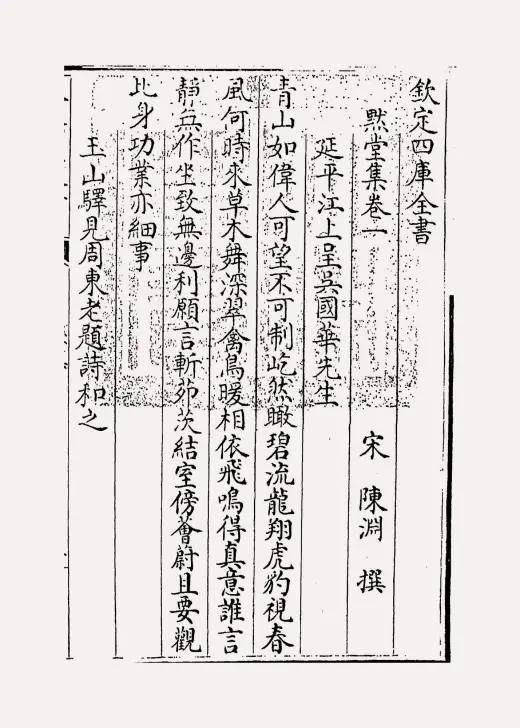 欽定四庫全書
默堂集卷一
宋 陳淵 撰
延平江上呈吳國華先生
青山如偉人可望不可制屹然瞰碧流龍翔虎豹視春
風何時來草木舞深翠禽鳥暖相依飛鳴得真意誰言
靜無作坐致無邊利願言斬茆茨結室傍薈蔚且要觀
此身功業亦細事
玉山驛見周東老題詩和之